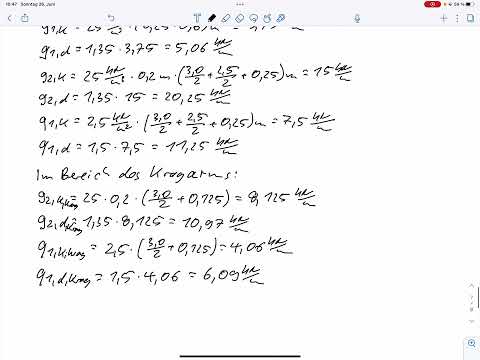 10:47 Sonntag 26. Juni
59 %
g1,k = 25
g1,d = 1,35 · 3,75 = 5,06 kN/m
g2,k = 25 kN/m³ · 0,2 m · (3,0/2 + 2,5/2 + 0,25) m = 15 kN/m
g2,d = 1,35 · 15 = 20,25 kN/m
q1,k = 2,5 kN/m² · (3,0/2 + 2,5/2 + 0,25) m = 7,5 kN/m
q1,d = 1,5 · 7,5 = 11,25 kN/m
Im Bereich des Kragarms:
g2,k,Krag = 25 · 0,2 · (3,0/2 + 0,125) = 8,125 kN/m
g2,d,Krag = 1,35 · 8,125 = 10,97 kN/m
q1,k,Krag = 2,5 · (3,0/2 + 0,125) = 4,06 kN/m
q1,d,Krag = 1,5 · 4,06 = 6,09 kN/m